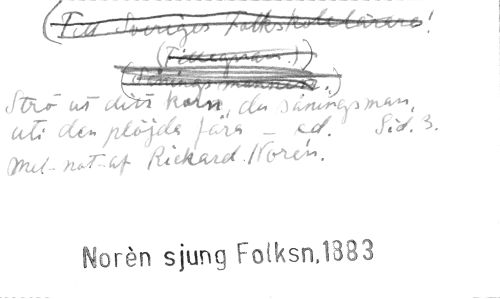 (Till Sveriges Folkskolelärare!
(Tillegnan.!)
(Såningsmannen.)
Strö ut ditt korn, du såningsman,
uti den plöjda fåra – ed. Sid. 3.
Mel- not- af Rickard Norén.
Norèn sjung Folksn,1883